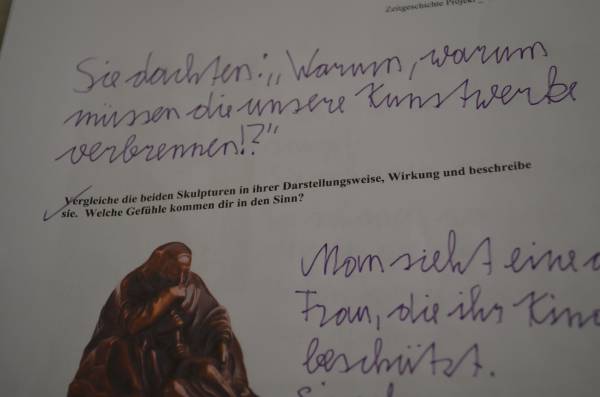 Zeitgeschichte Projekt _
Sie dachten: „Warum, warum
müssen die unsere Kunstwerke
verbrennen!?"
Vergleiche die beiden Skulpturen in ihrer Darstellungsweise, Wirkung und beschreibe
sie. Welche Gefühle kommen dir in den Sinn?
Man sieht eine
Frau, die ihr Kin
beschützt.